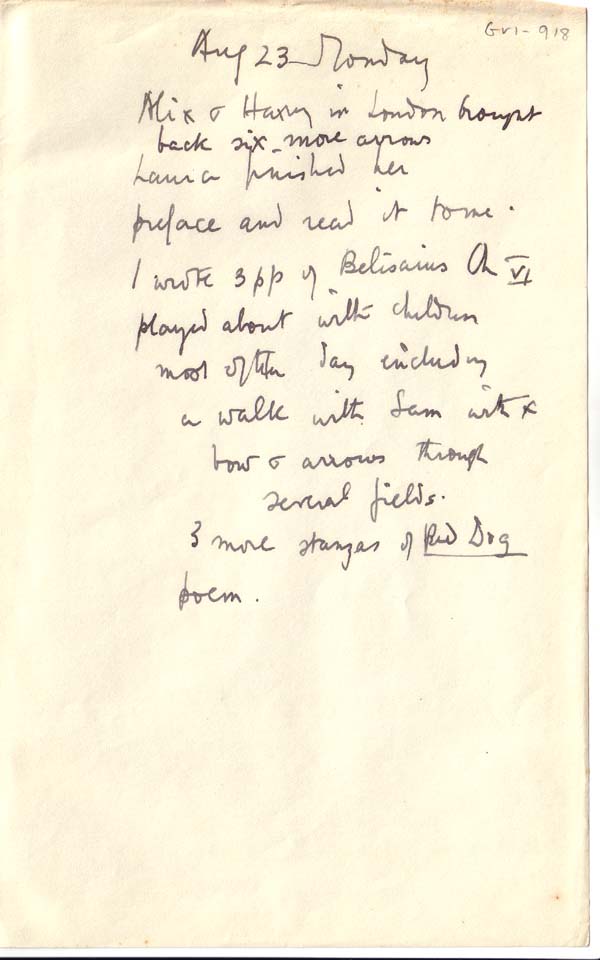 GVI-918
Aug 23 Monday
Alix & Harry in London brought
back six more arrows
Laura finished her
preface and read it to me.
I wrote 3 pp of Belisarius Ch VI
played about with children
most of the day including
a walk with Sam with
bow & arrows through
several fields.
3 more stanzas of Red Dog
poem.